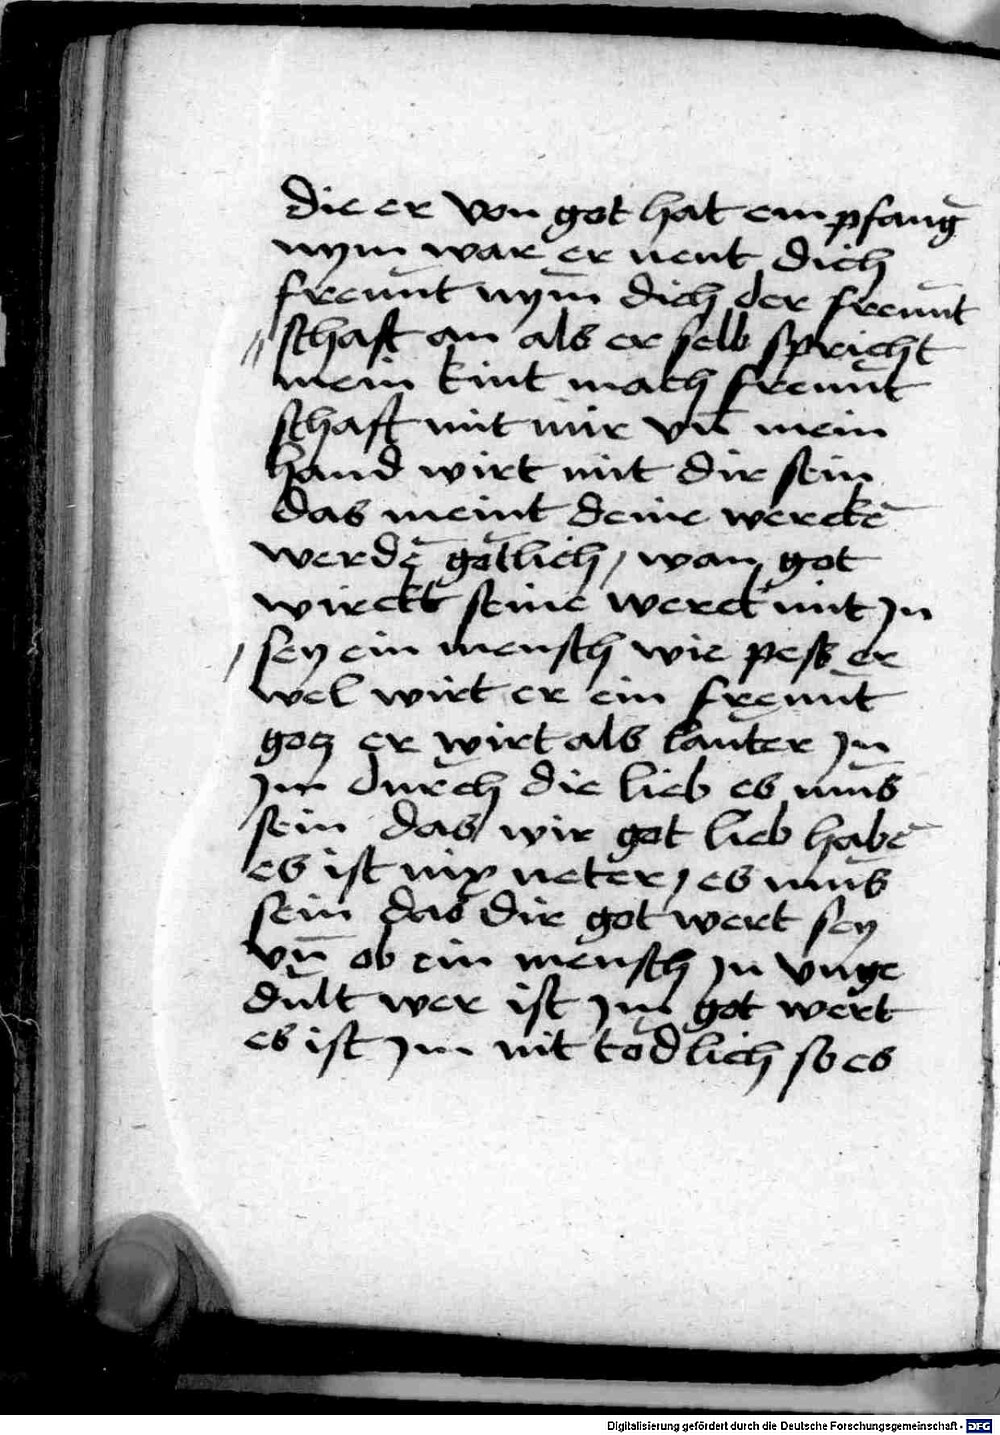 die er von got hat empfang̅
nym war er nent dich
freun̅t nym̅ dich der freun̅t
schaft an als er selb spricht
mein kint mach freun̅t
schaft mit mir vn̅ mein
hand wirt mit dir sein
das meint deine wercke̅
werde̅ gotlich / wan got
wirckt seine werck mit Jn
/ sey ein mensch wie pess er
wel wirt er ein freun̅t
gotz er wirt als lauter Jn
Jm durch die lieb es mus
sein das wir got lieb habe̅
es ist nix neter / es mus
sein das dir got wert sey
vn̅ ob ein mensch Jn vnge
dult wer ist Jm got wert
es ist Jm nit todlich so es
Digitalisierung gefördert durch die Deutsche Forschungsgemeinschaft - DFG